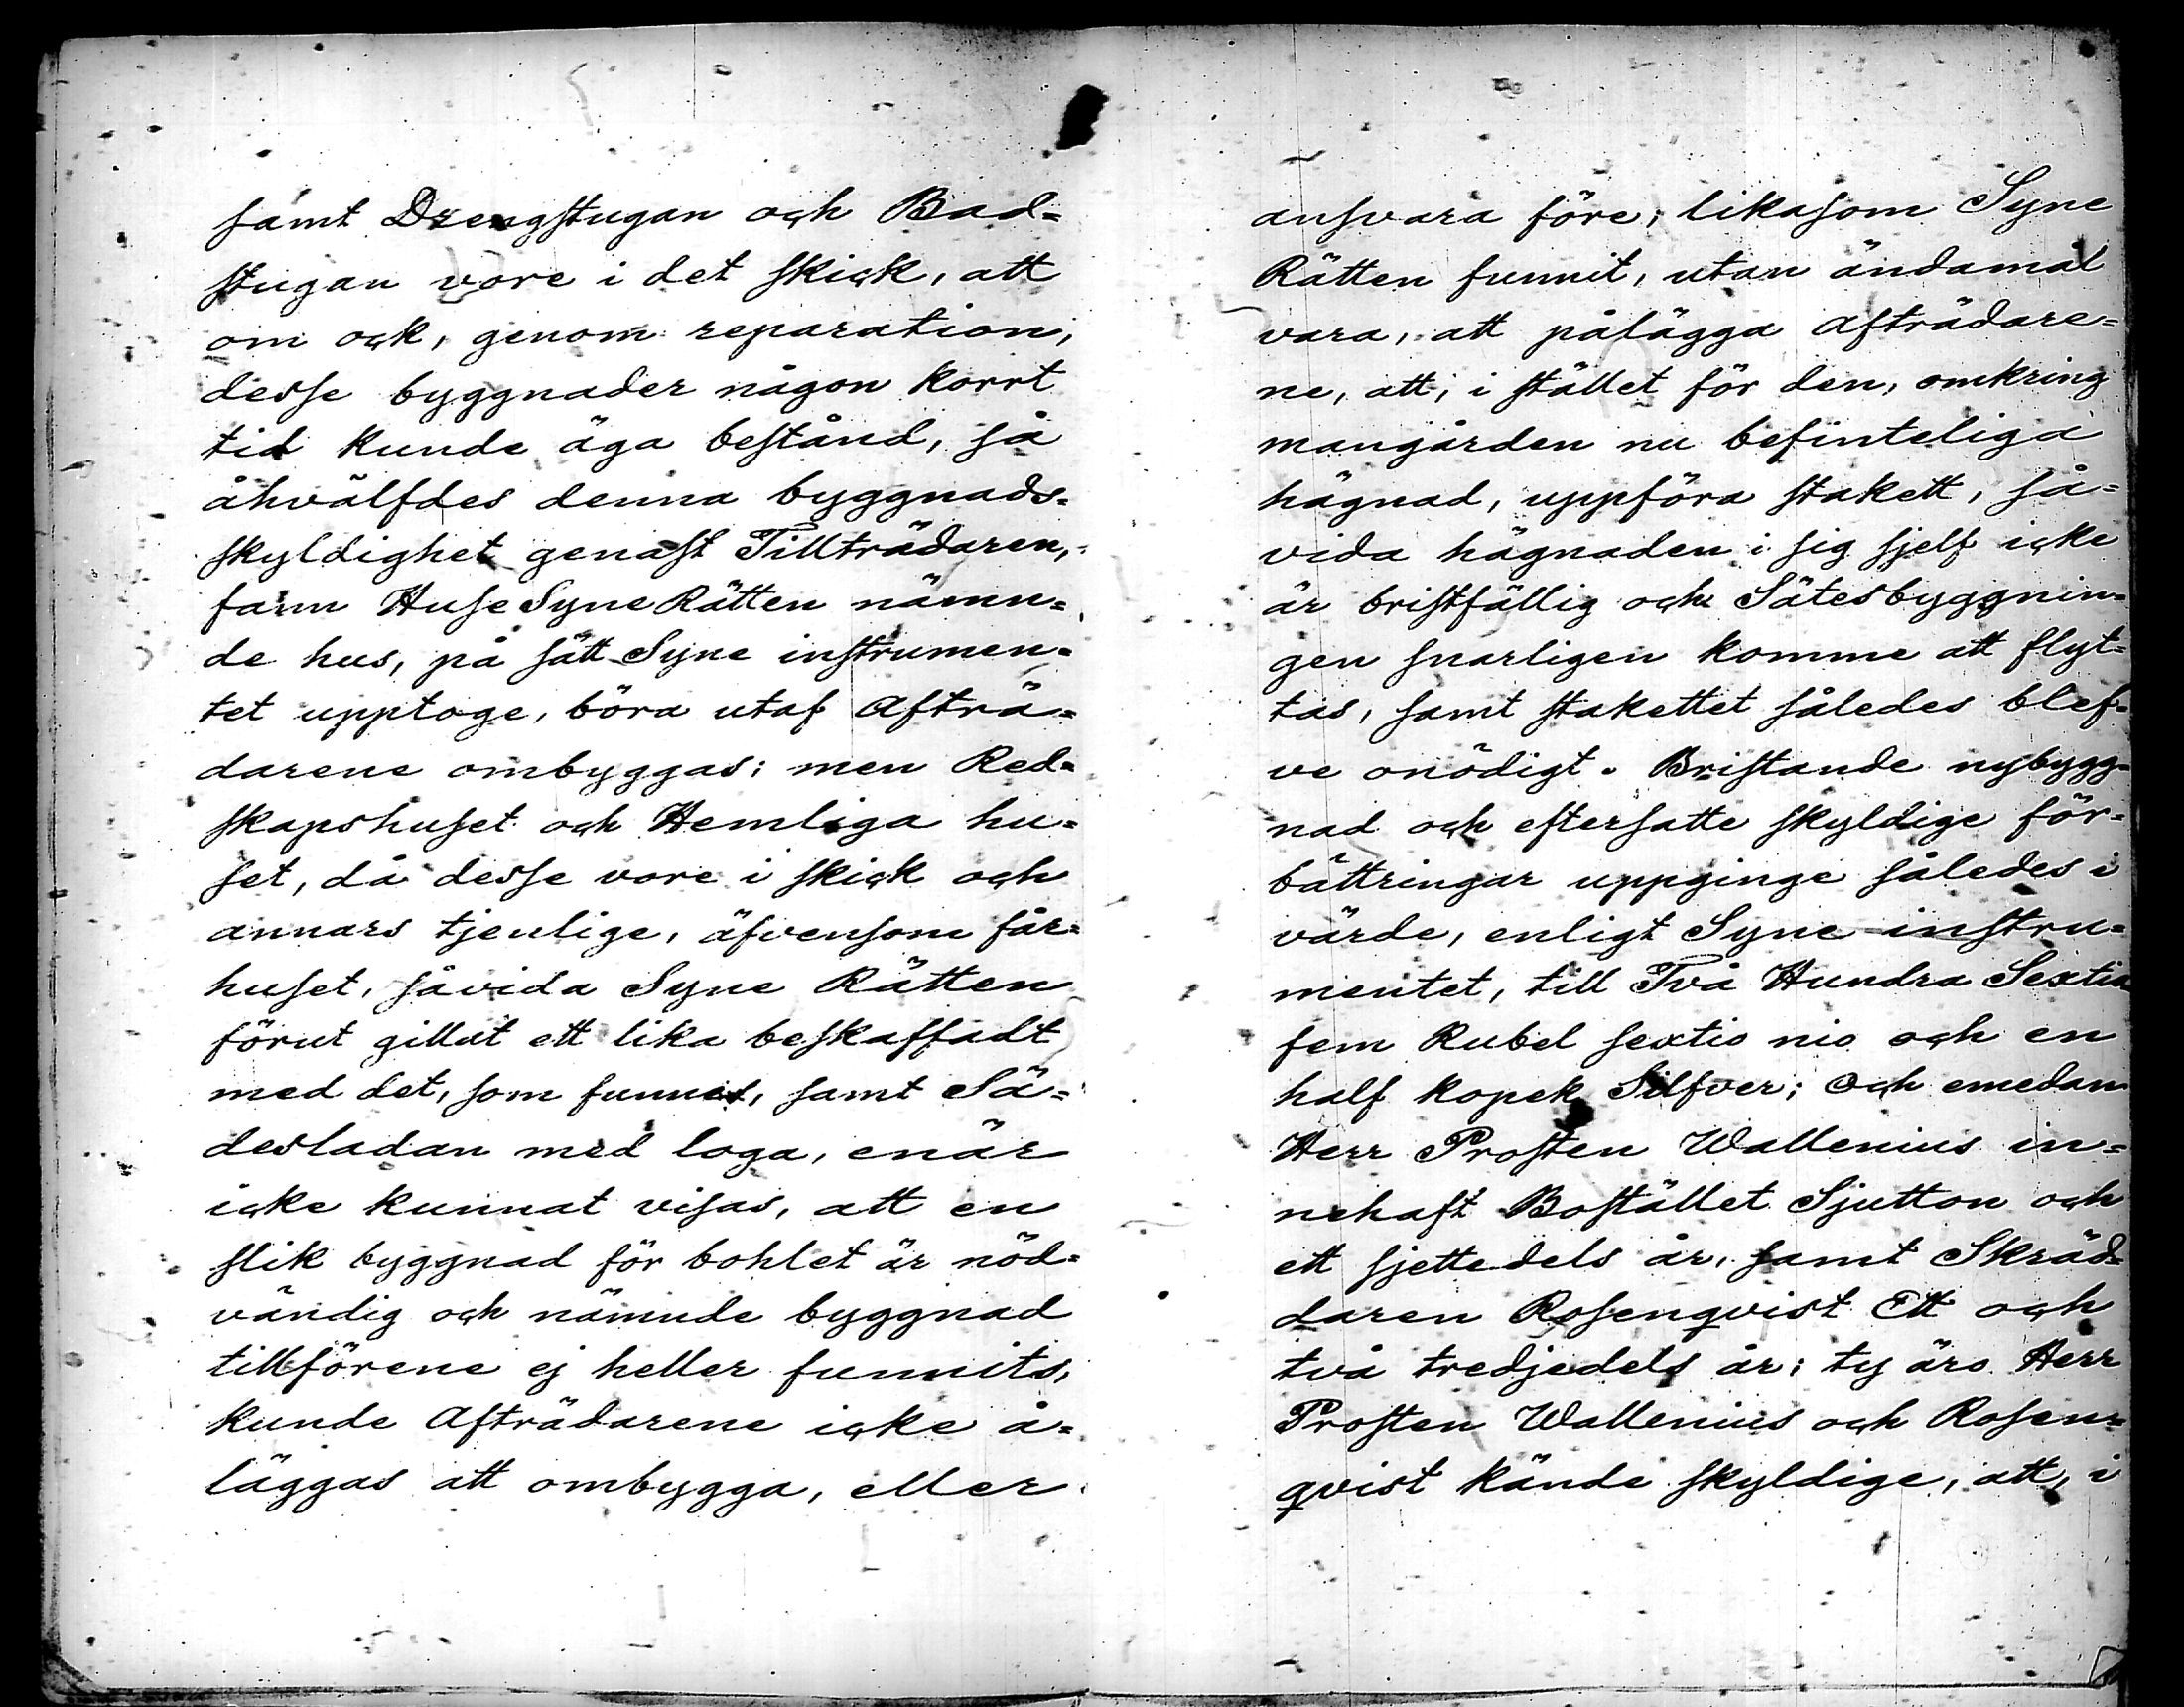 samt Drengstugan och Bad=
stugan vore i det skick, att
om ock, genom reparation,
desse byggnader någon kort
tid kunde äga bestånd, så
åhvälfdes denna byggnads=
skyldighet genast Tillträdaren,
fann HuseSyneRätten nämn=
de hus, på sätt Syne instrumen=
tet upptoge, böra utaf Afträ=
darene ombyggas; men Red=
skapshuset och Hemliga hu=
set, då desse vore i skick och
annars tjenlige, äfvensom får=
huset, såvida Syne Rätten
förut gillat ett lika beskaffadt
med det, som funnes, samt Sä=
desladan med loga, enär
icke kunnat visas, att en
slik byggnad för bohlet är nöd=
vändig och nämnde byggnad
tillförene ej heller funnits,
kunde Afträdarene icke å=
läggas att ombygga, eller
ansvara före; likasom Syne
Rätten funnit, utan ändamål
vara, att pålägga Afträdare=
ne, att, i stället för den, omkring
mangården nu befinteliga
hägnad, uppföra stakett, så=
vida hägnaden i sig sjelf icke
är bristfällig och Sätesbyggnin=
gen snarligen komme att flyt=
tas, samt stakettet således blef=
ve onödigt. Bristande nybygg=
nad och eftersatte skyldige för=
bättringar uppginge således i
värde, enligt Syne instru=
mentet, till Två Hundra Sextio
fem Rubel sextio nio och en
half kopek Silfver; Och emedan
Herr Prosten Wallenius in=
nehaft Bostället Sjutton och
ett sjettedels år, samt Skräd=
daren Rosenqvist Ett och
två tredjedels år; ty äro Herr
Prosten Wallenius och Rosen=
qvist kände skyldige, att, i